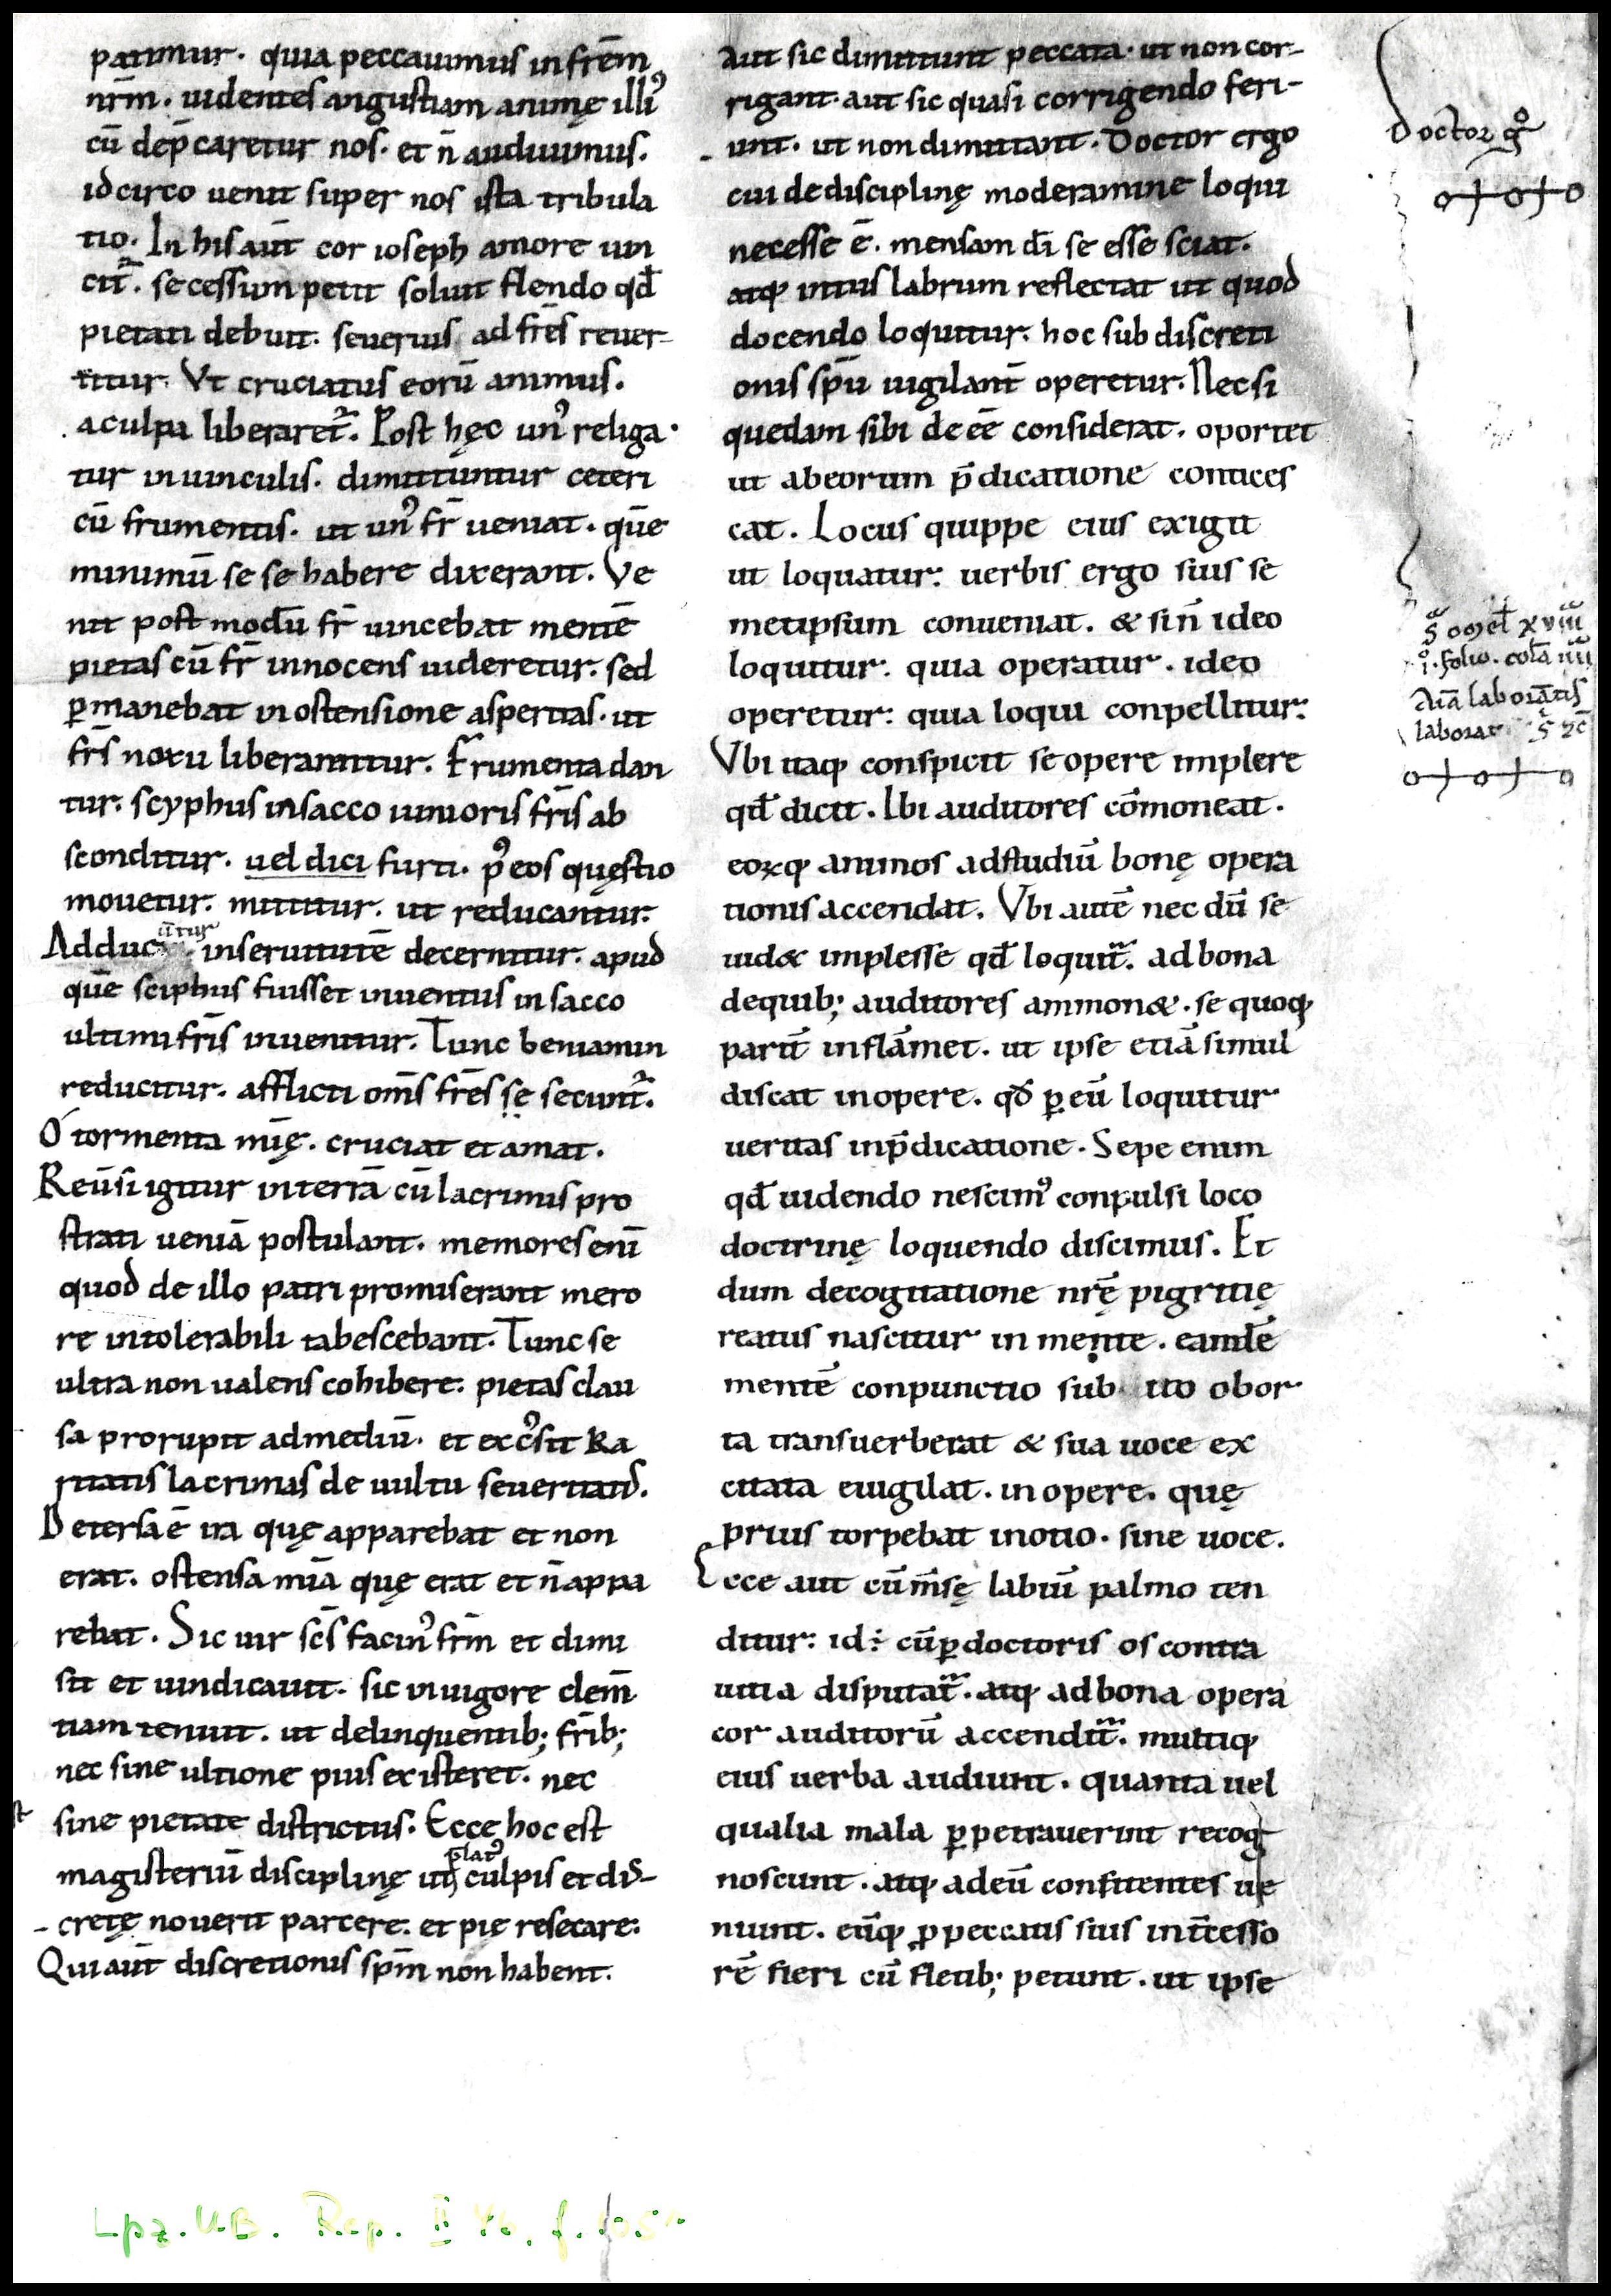 patimur. quia peccauimus in frēm
nr̄m. uidentes angustiam animę illiꝰ
cū dep̄caretur nos. et n̄ audiuimus.
idcirco uenit super nos ista tribula
tio. In his aūt cor ioseph amore uin
cit᷑. secessum petit soluit flendo qd̄
pietati debuit. seuerius ad frēs reuer-
titur. Vt cruciatus eorū animus.
a culpa liberaret᷑. Post hęc unꝰ religa
tur in uinculis. dimittuntur ceteri
cū frumentis. ut unꝰ fr̄ ueniat. quē
minimū se se habere dixerant. Ve
nit post modū fr̄ uincebat mentē
pietas cū fr̄ innocens uideretur. sed
ꝑmanebat in ostensione asperitas. ut
fr̄s noxu liberarntur. Frumenta dan
tur. scyphus in sacco iunioris fr̄is ab
sconditur. uel dici furti. pꝰ eos quęstio
mouetur. mittitur. ut reducantur.
Adduc ūtur in seruitutē decernitur. apud
quē sciphus fuisset inuentus in sacco
ultimi fr̄is inuenitur. Tunc beniamin
reducitur. afflicti om̄s frēs se secunt᷑.
O tormenta mīę. cruciat et amat.
Reūsi igitur in terrā cū lacrimis pro
strati ueniā postulant. memores enī
quod de illo patri promiserant mero
re intolerabili tabescebant. Tunc se
ultra non ualens cohibere. pietas clau
sa prorupit ad mediū. et excꝰsit ka
ritatis lacrimas de uultu seueritatis.
Detersa ē ira quę apparebat et non
erat. ostensa mīa quę erat et n̄ appa
rebat. Sic uir sc̄s facinꝰ fr̄m et dimi
sit et uindicauit. sic in uigore clem̄
tiam tenuit. ut delinquentib; fr̄ib;
nec sine ultione pius existeret. nec
sine pietate districtus. Ecce hoc est
platꝰ
magisteriū disciplinę ut culpis et dis-
cretę nouerit parcere. et pie resecare.
Qui aūt discretionis spm̄ non habent.
Aut sic dimittunt peccata. ut non cor-
rigant. aut sic quasi corrigendo feri-
unt. ut non dimittant. Doctor ergo
cui de disciplinę moderamine loqui
necesse ē. mensam dī se esse sciat.
atqꝫ intus labrum reflectat ut quod
docendo loquitur. hoc sub discreti
onis spū uigilant̄ operetur. Nec si
quedam sibi deeē considerat. oportet
ut ab eorum p̄dicatione contices
cat. Locus quippe eius exigit
ut loquatur. uerbis ergo suis se
metipsum conueniat. & si n̄ ideo
loquitur. quia operatur. ideo
operetur. quia loqui conpellitur.
Vbi itaqꝫ conspicit se opere implere
qd̄ dicit. Ibi auditores cōmoneat.
eoꝝqꝫ animos ad studiū bonę opera
tionis accendat. Vbi autē nec dū se
uid& implesse qd̄ loquit᷑. ad bona
de quib; auditores ammon&. se quoqꝫ
parit̄ inflāmet. ut ipse etiā simul
discat in opere. qd̄ ꝑ eū loquitur
ueritas in p̄dicatione. Sepe enim
qd̄ uidendo nescimꝰ conpulsi loco
doctrinę loquendo discimus. Et
dum de cogitatione nr̄ę pigritię
reatus nascitur in mente. eandē
mentē conpunctio subito obor
ta transuerberat & sua uoce ex
citata euigilat. in opere. quę
prius torpebat in otio. sine uoce.
Ecce aut cū m̄sę labiū palmo ten
ditur. id÷ cū ꝑ doctoris os contra
uitia disputat᷑. atqꝫ ad bona opera
cor auditorū accendit᷑. multiqꝫ
eius uerba audiunt. quanta uel
qualia mala ꝑpetrauerint recog
noscunt. atqꝫ ad eū confitentes ue
niunt. eūqꝫ ꝓ peccatis suis int̄cesso
rē fieri cū fletib; petunt. ut ipse
Doctor gͦ
s̄ omel̄ xviii
i. folio. colā iiii
Aīa laborātis
laborat s̄ ⁊c̄
Lpz. UB. Rep. II